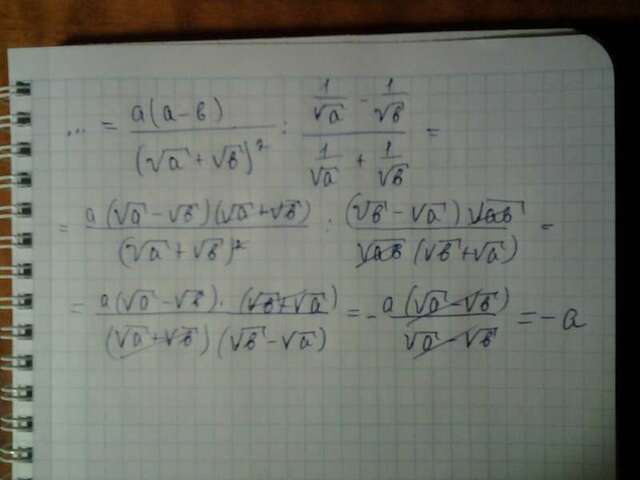 ... = a(a-b)/(√a + √b)² : (1/√a - 1/√b)/(1/√a + 1/√b) =
= a(√a - √b)(√a + √b)/(√a + √b)² : (√b - √a)√ab/√ab(√b + √a) =
= a(√a - √b)·(√b + √a)/(√a + √b)(√b - √a) = - a(√a - √b)/√a - √b = - a